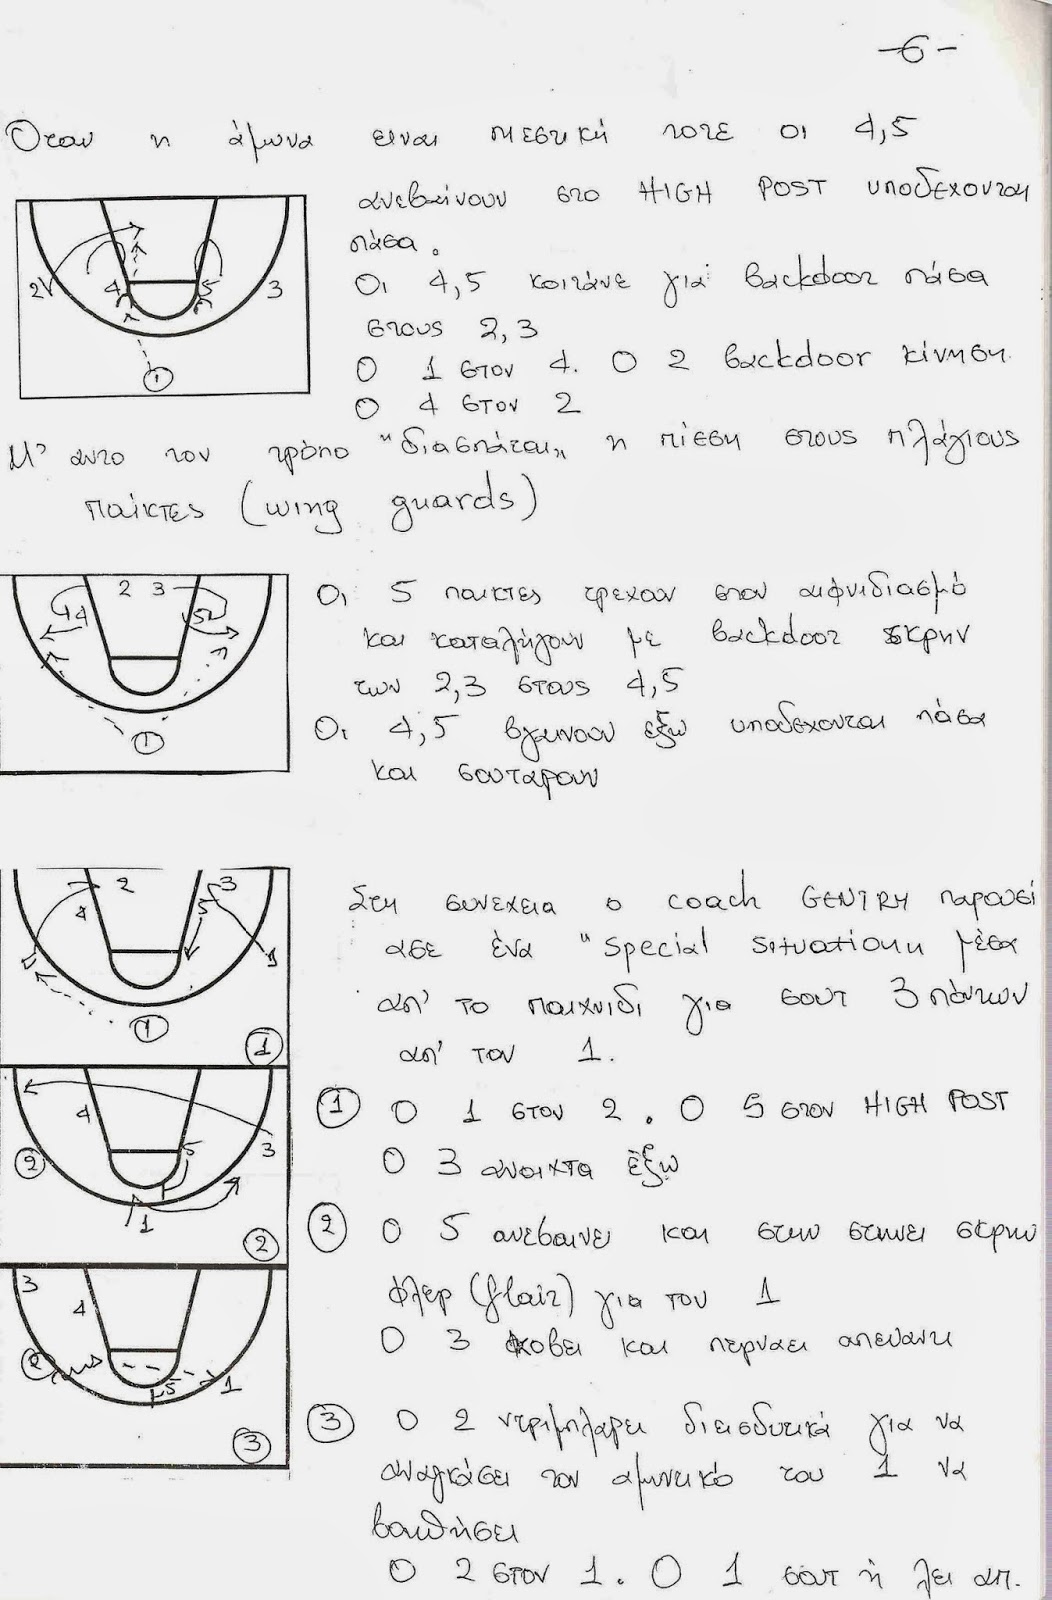 -6-
Οταν η άμυνα ειναι πιεστική τοτε οι 4,5
ανεβαίνουν στο HIGH POST υποδεχονται
πάσα.
Οι 4,5 κοιτάνε για backdoor πάσα
στους 2,3
Ο 1 στον 4. Ο 2 backdoor κίνηση.
Ο 4 στον 2
Μ' αυτο τον τρόπο "διασπάται" η πίεση στους πλάγιους
παίκτες (wing guards)
2 4 5 3
1
Οι 5 παικτες τρεχουν στον αιφνιδιασμό
και καταλήγουν με backdoor σκρην
των 2,3 στους 4,5
Οι 4,5 βγαινουν έξω υποδεχονται πάσα
και σουταρουν
2 3
4 5
1
Στη συνεχεια ο coach GENTRY παρουσί
ασε ένα "special situation" μέσα
απ' το παιχνιδι για σουτ 3 πόντων
απ' τον 1.
2 3
4 5
1
1
① Ο 1 στον 2. Ο 5 στον HIGH POST
Ο 3 ανοιχτα έξω
4
2 5 3
1
2
② Ο 5 ανεβαινει και στην στηνει σκρην
φλερ (flair) για τον 1
Ο 3 κοβει και περναει απεναντι
3 4
2 5 1
3
③ Ο 2 ντριμπλαρει διεισδυτικά για να
αναγκάσει τον αμυντικό του 1 να
βοηθήσει
Ο 2 στον 1. Ο 1 σουτ ή λει απ.